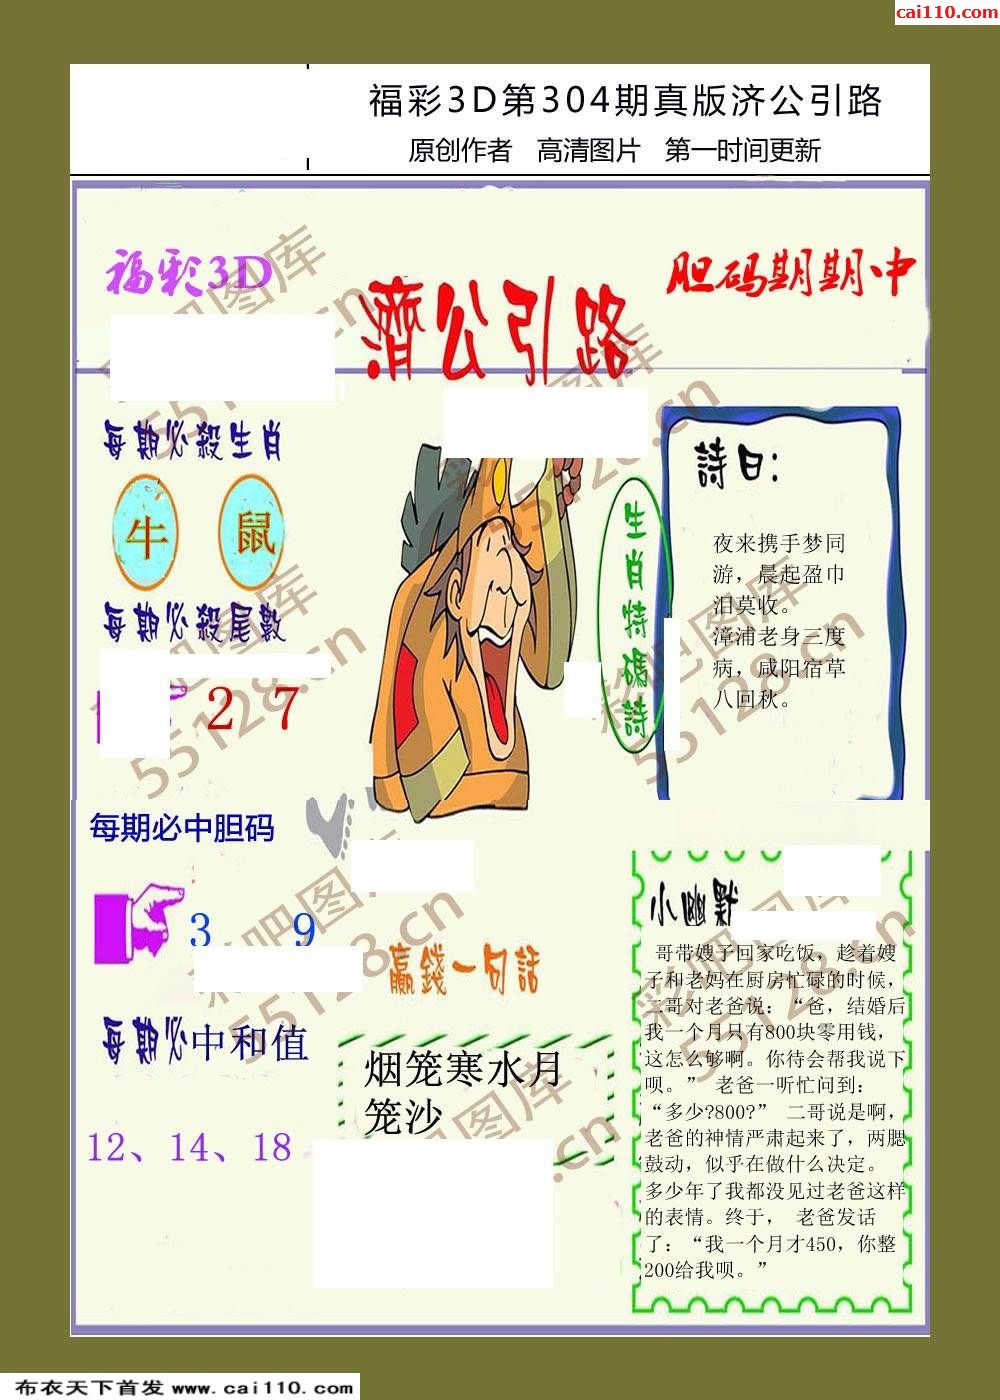 cai110.com
福彩3D第304期真版济公引路
原创作者 高清图片 第一时间更新
福彩3D
濟公引路
胆码期期中
每期必殺生肖
牛 鼠
每期必殺尾數
2 7
生肖特碼詩
詩曰：
夜来携手梦同
游，晨起盈巾
泪莫收。
漳浦老身三度
病，咸阳宿草
八回秋。
每期必中胆码
3 9
每期必中和值
12、14、18
贏錢一句話
烟笼寒水月
笼沙
小幽默
哥带嫂子回家吃饭，趁着嫂
子和老妈在厨房忙碌的时候，
二哥对老爸说：“爸，结婚后
我一个月只有800块零用钱，
这怎么够啊。你待会帮我说下
呗。” 老爸一听忙问到：
“多少?800?” 二哥说是啊，
老爸的神情严肃起来了，两腮
鼓动，似乎在做什么决定。
多少年了我都没见过老爸这样
的表情。终于， 老爸发话
了：“我一个月才450，你整
200给我呗。”
彩吧图库
55128.cn
布衣天下首发 www.cai110.com